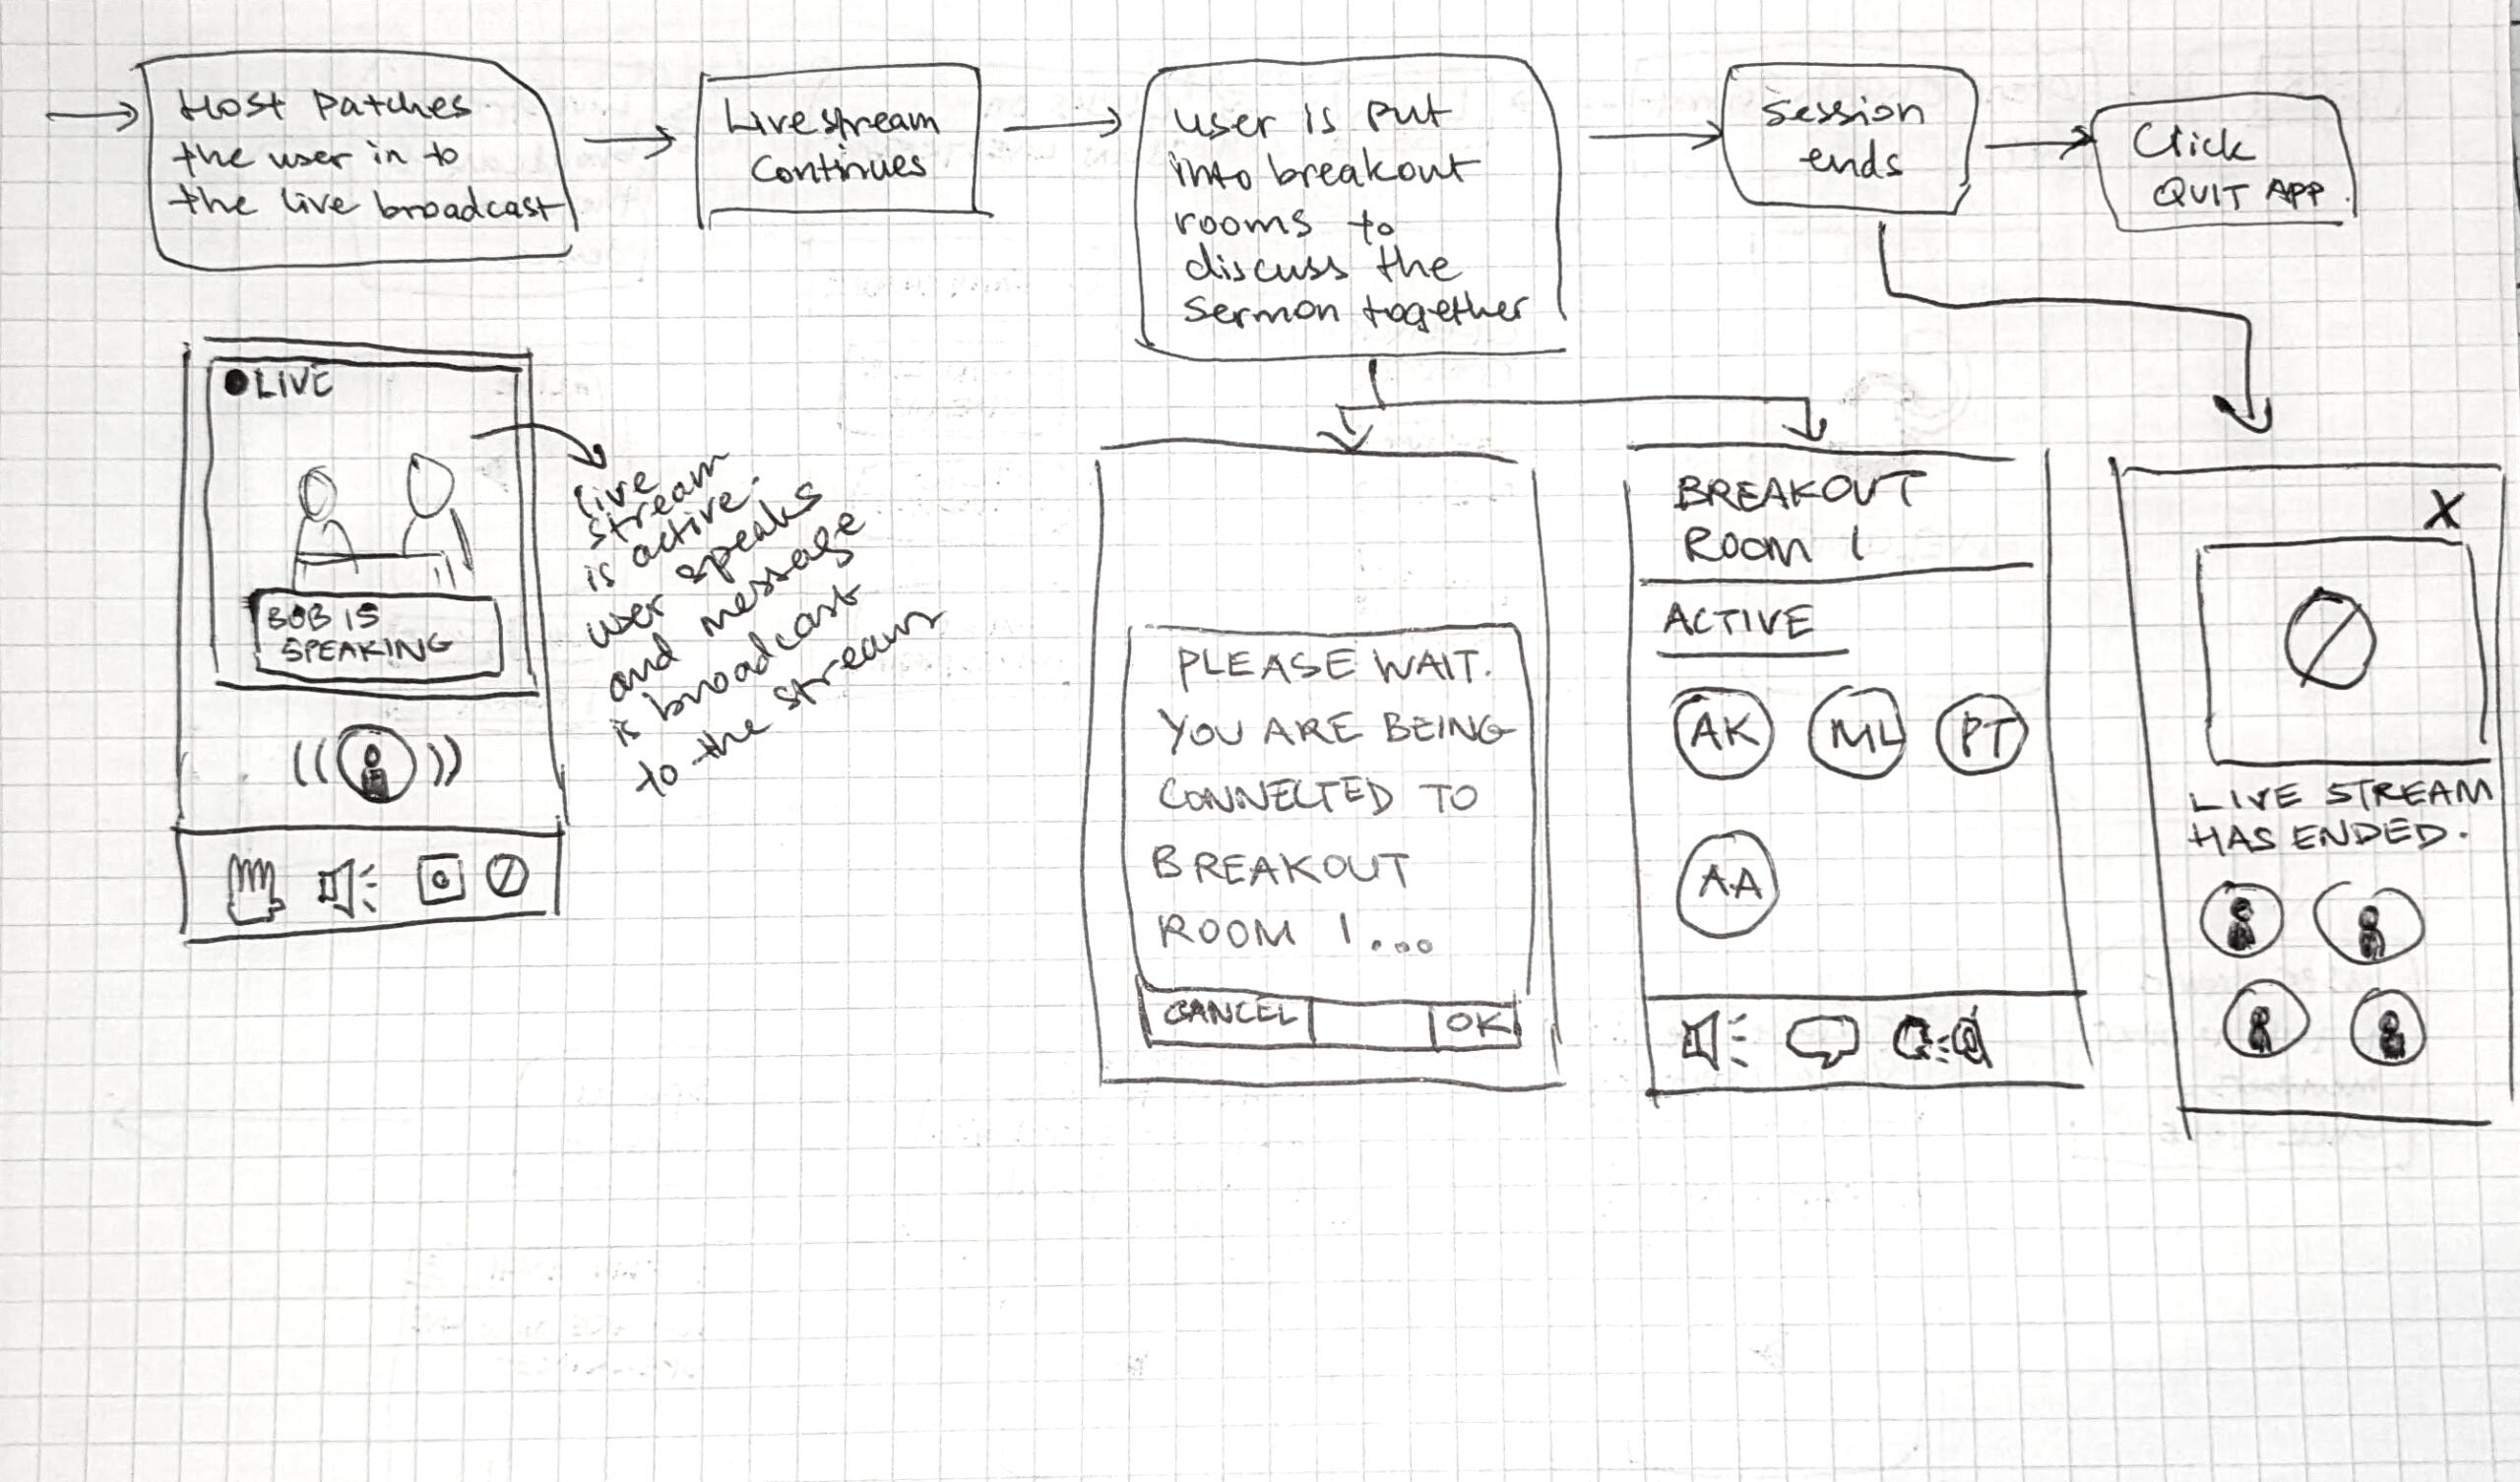 Host Patches
the user in to
the live broadcast
Livestream
Continues
user is put
into breakout
rooms to
discuss the
Sermon together
Session
ends
Click
QUIT APP.
LIVE
BOB IS
SPEAKING
live
stream
is active.
user speaks
and message
is broadcast
to the stream
PLEASE WAIT.
YOU ARE BEING
CONNECTED TO
BREAKOUT
ROOM 1...
CANCEL
OK
BREAKOUT
ROOM 1
ACTIVE
AK ML PT
AA
X
LIVE STREAM
HAS ENDED.